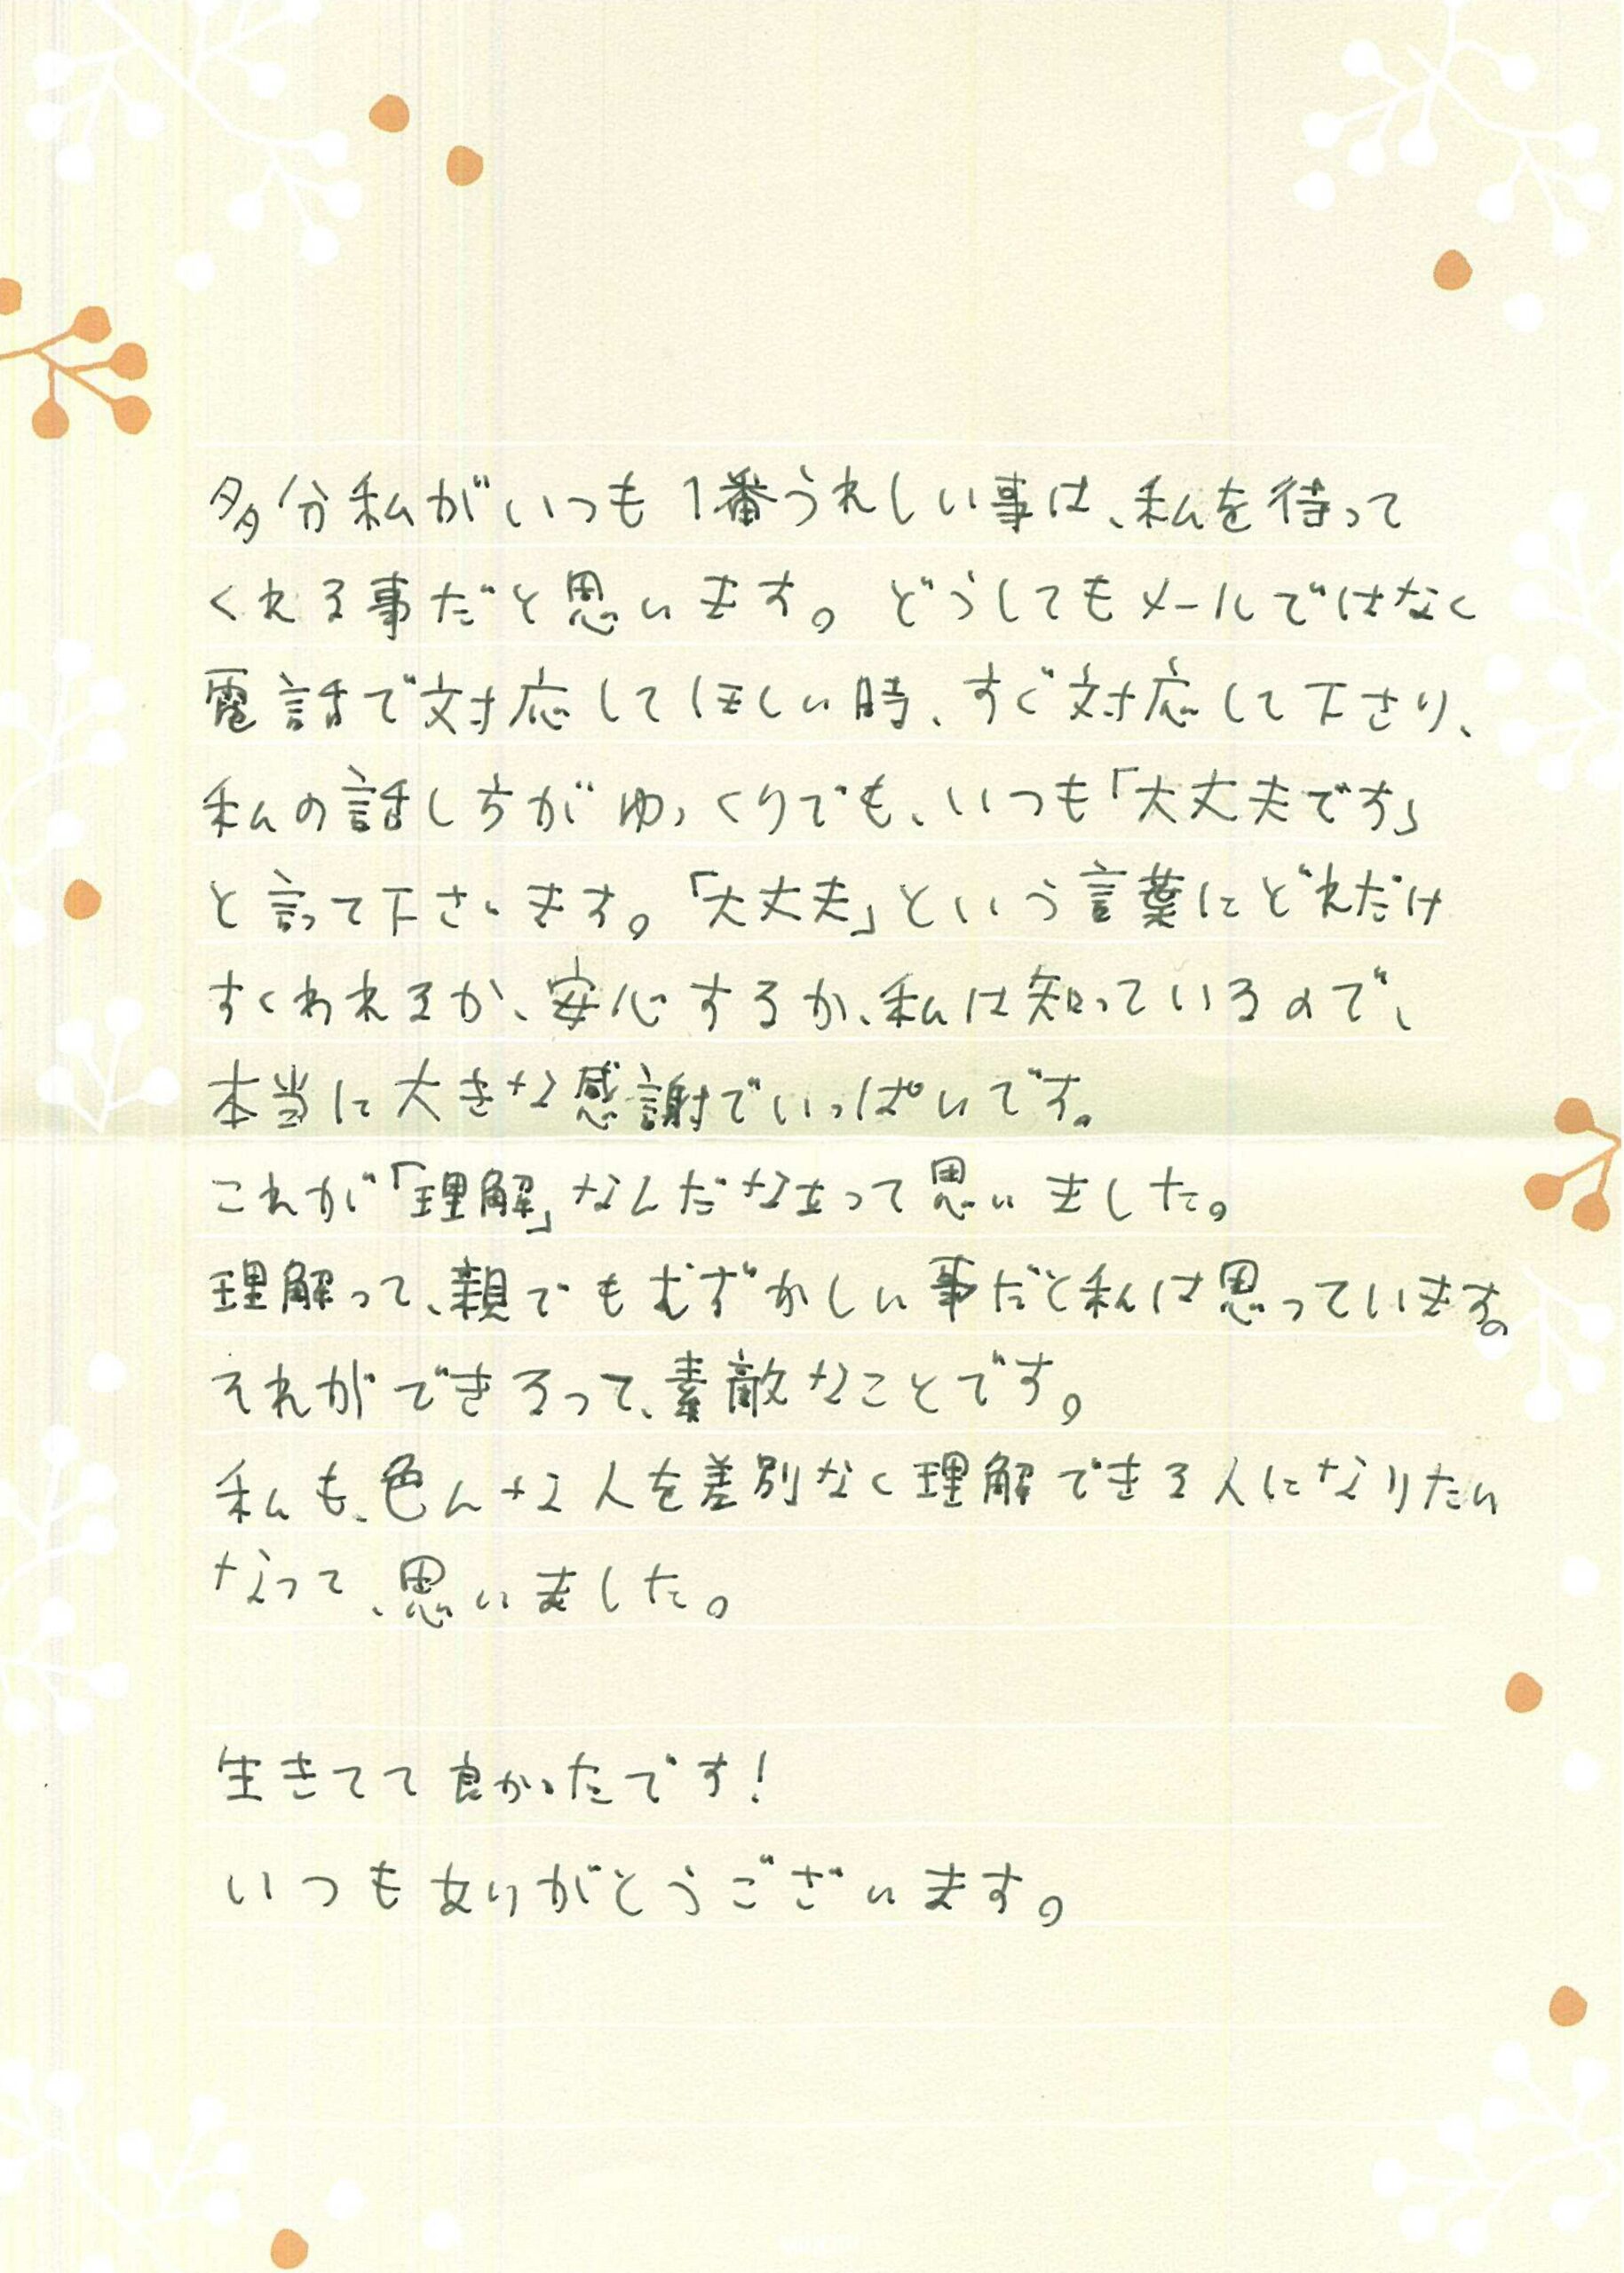 多分私がいつも1番うれしい事は、私を待って
くれる事だと思います。どうしてもメールではなく
電話で対応してほしい時、すぐ対応して下さり、
私の話し方がゆっくりでも、いつも「大丈夫です」
と言って下さいます。「大丈夫」という言葉にどれだけ
すくわれるか、安心するか、私は知っているので、
本当に大きな感謝でいっぱいです。
これが「理解」なんだなぁって思いました。
理解って、親でもむずかしい事だと私は思っています。
それができるって、素敵なことです。
私も、色んな人を差別なく理解できる人になりたい
なって、思いました。
生きてて良かったです!
いつもありがとうございます。